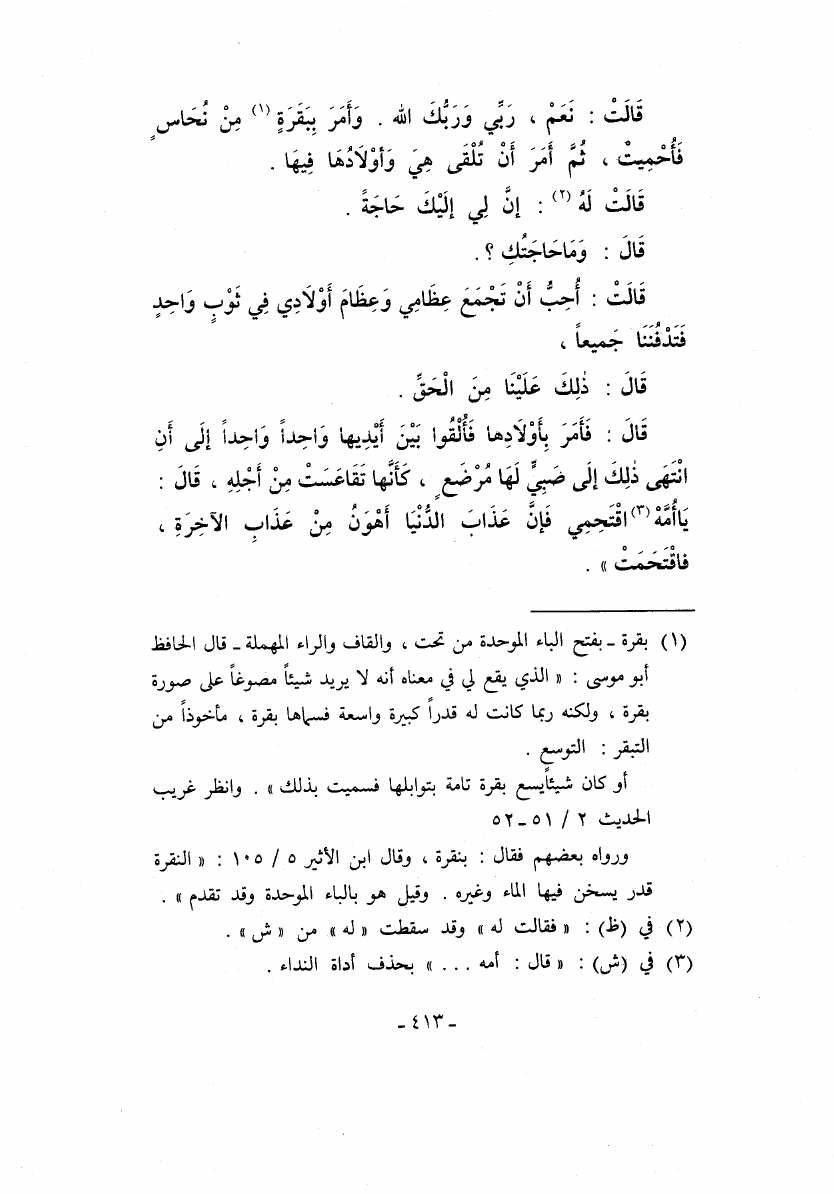 قَالَتْ : نَعَمْ ، رَبِّي وَرَبُّكَ الله . وَأَمَرَ بِبَقَرَةٍ (١) مِنْ نُحَاسٍ
فَأُحْمِيتْ ، ثُمَّ أَمَرَ أَنْ تُلْقَى هِيَ وَأَوْلَادُهَا فِيهَا .
قَالَتْ لَهُ (٢) : إِنَّ لِي إِلَيْكَ حَاجَةً .
قَالَ : وَمَا حَاجَتُكِ ؟ .
قَالَتْ : أُحِبُّ أَنْ تَجْمَعَ عِظَامِي وَعِظَامَ أَوْلَادِي فِي ثَوْبٍ وَاحِدٍ
فَتَدْفُنَنَا جَمِيعاً ،
قَالَ : ذٰلِكَ عَلَيْنَا مِنَ الْحَقِّ .
قَالَ : فَأَمَرَ بِأَوْلَادِها فَأُلْقُوا بَيْنَ أَيْدِيها وَاحِداً وَاحِداً إِلَى أَنِ
انْتَهَى ذٰلِكَ إِلَى صَبِيٍّ لَهَا مُرْضَعٍ ، كَأَنَّها تَقَاعَسَتْ مِنْ أَجْلِهِ ، قَالَ :
يَاأُمَّهْ (٣) اقْتَحِمِي فَإِنَّ عَذَابَ الدُّنْيَا أَهْوَنُ مِنْ عَذَابِ الآخِرَةِ ،
فاقْتَحَمَتْ » .
(١) بقرة - بفتح الباء الموحدة من تحت ، والقاف والراء المهملة - قال الحافظ
أبو موسى : « الذي يقع لي في معناه أنه لا يريد شيئاً مصوغاً على صورة
بقرة ، ولكنه ربما كانت له قدراً كبيرة واسعة فسماها بقرة ، مأخوذاً من
التبقر : التوسع .
أو كان شيئاً يسع بقرة تامة بتوابلها فسميت بذلك » . وانظر غريب
الحديث ٢ / ٥١ - ٥٢
ورواه بعضهم فقال : بنقرة ، وقال ابن الأثير ٥ / ١٠٥ : « النقرة
قدر يسخن فيها الماء وغيره . وقيل هو بالباء الموحدة وقد تقدم » .
(٢) في (ظ) : « فقالت له » وقد سقطت « له » من « ش » .
(٣) في (ش) : « قال : أمه ... » بحذف أداة النداء .
- ٤١٣ -